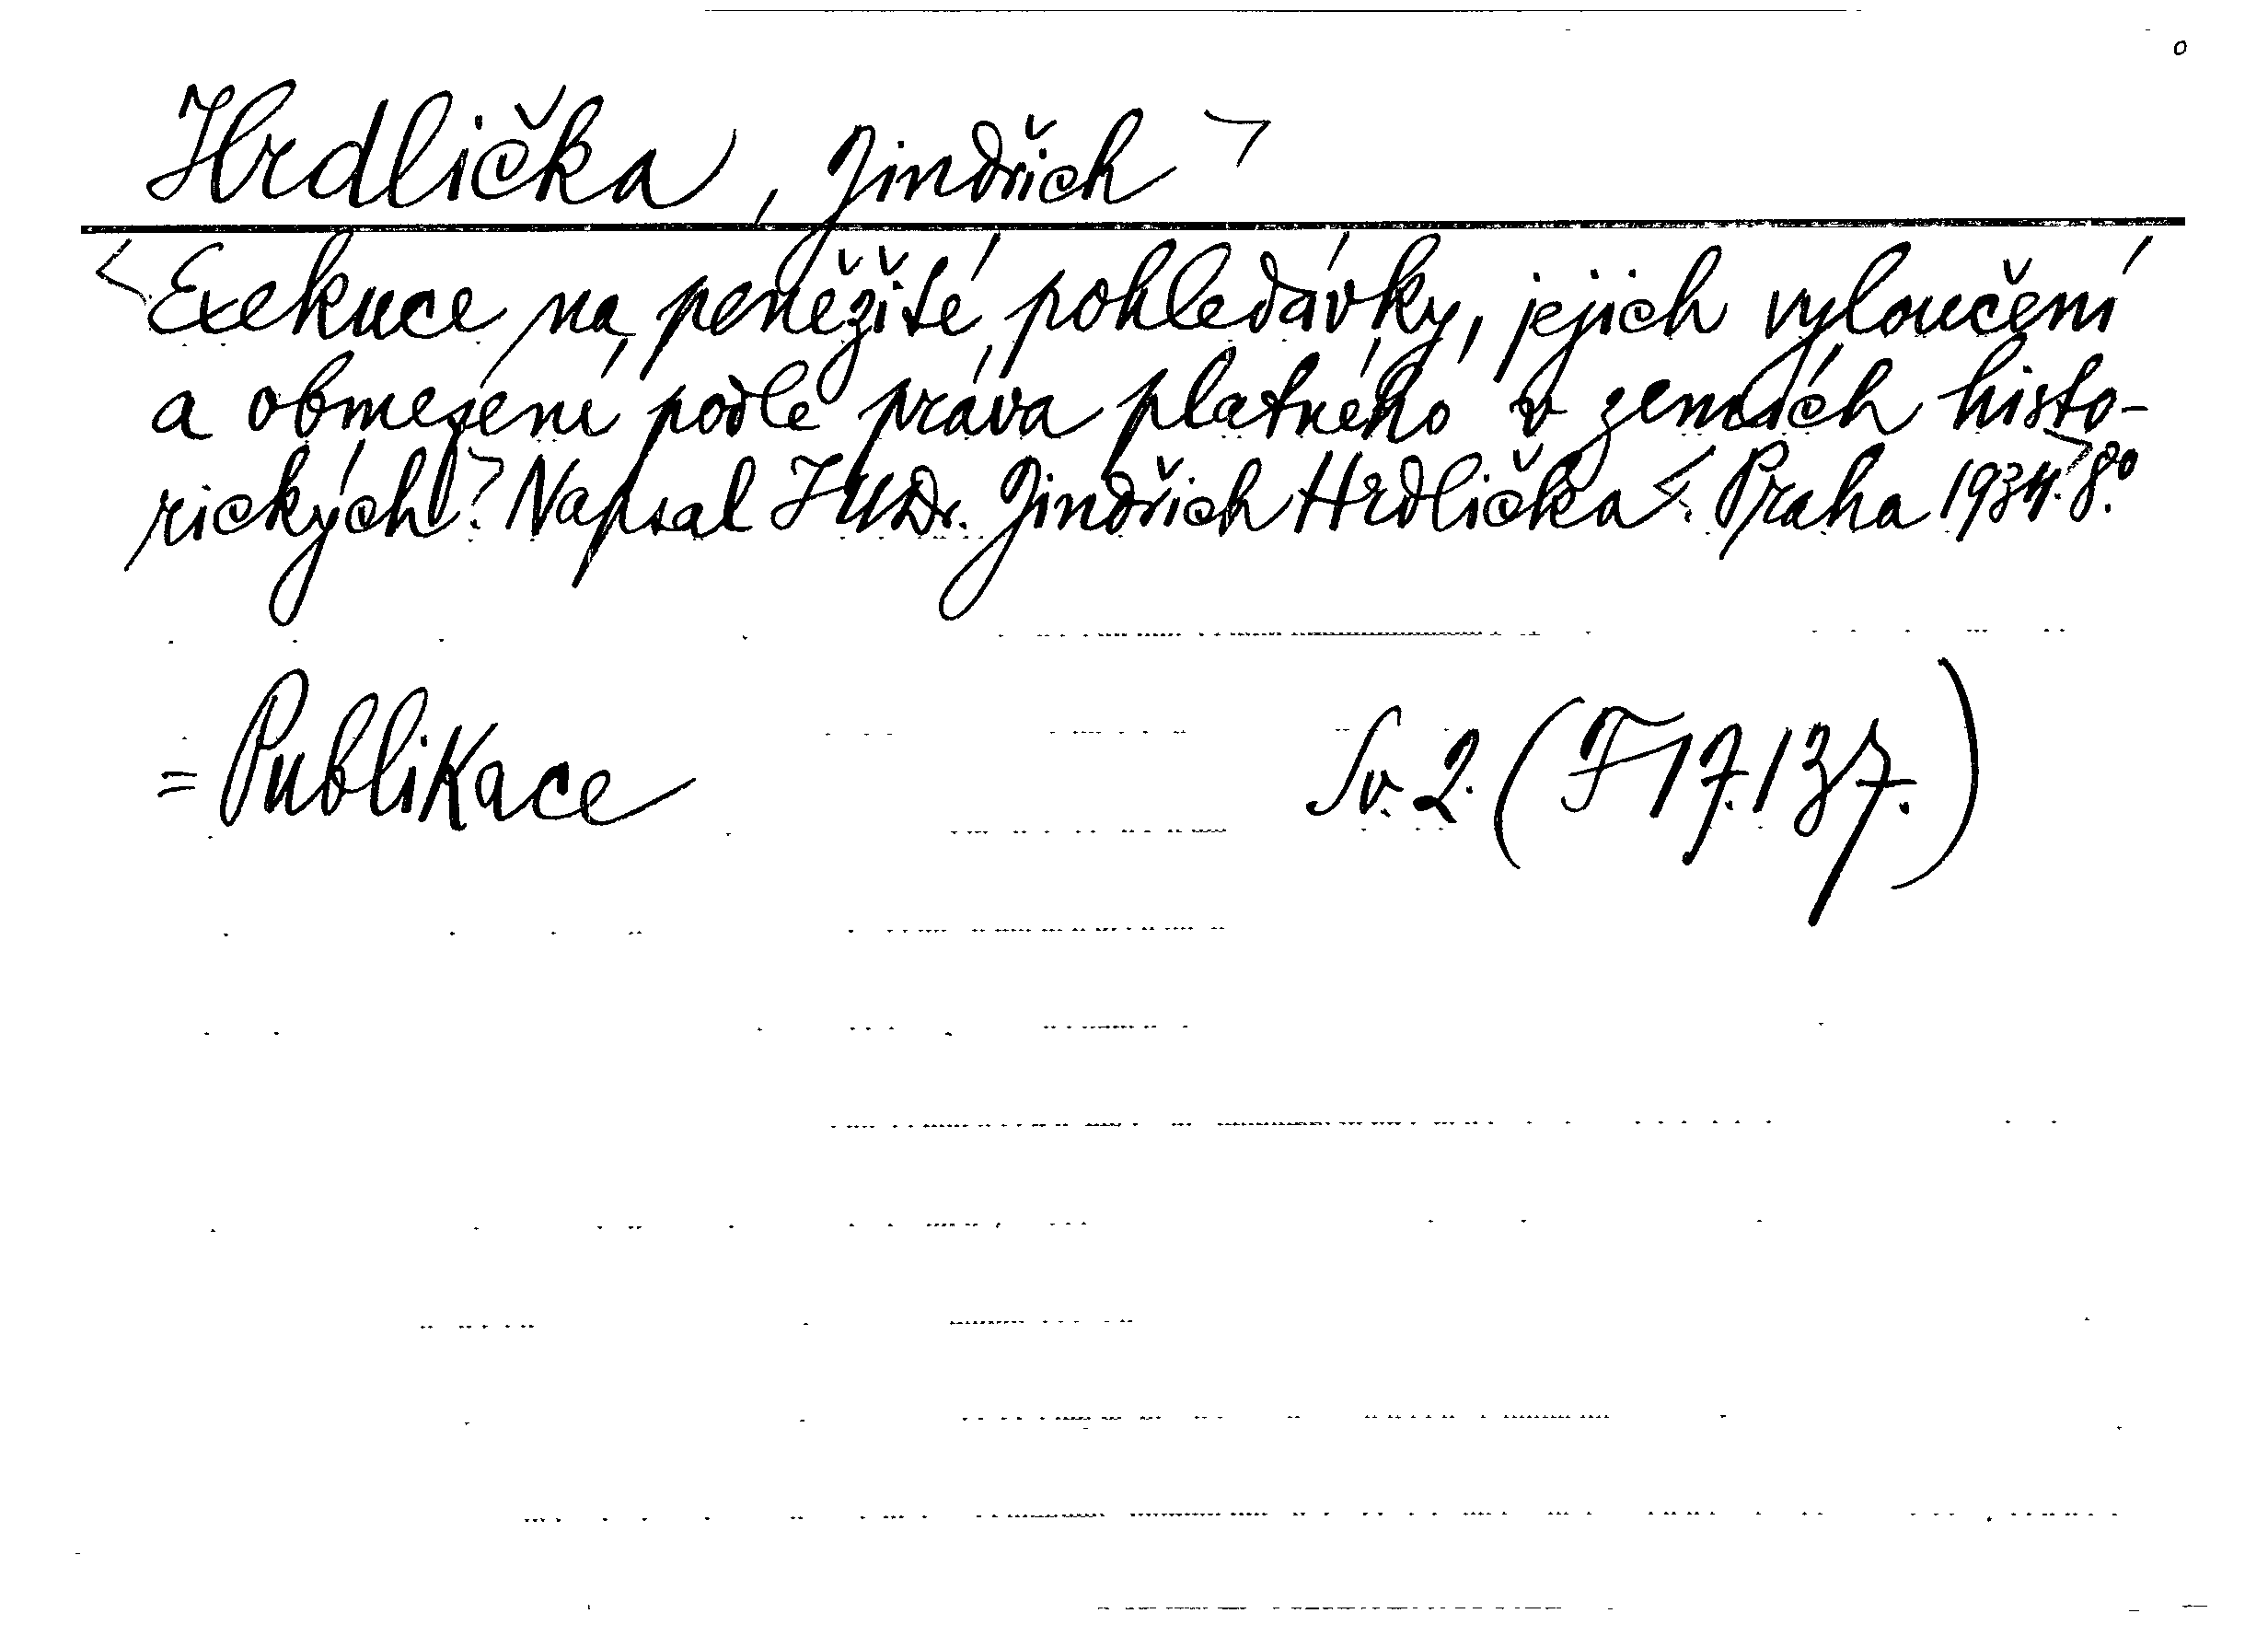 Hrdlička, Jindřich >
< Exekuce na peněžité pohledávky, jejich vyloučení
a obmezení podle práva platného v zemích histo-
rických >. Napsal JUDr. Jindřich Hrdlička <. Praha 1934. > 8.°
= Publikace Sv. 2. (F 17.137.)